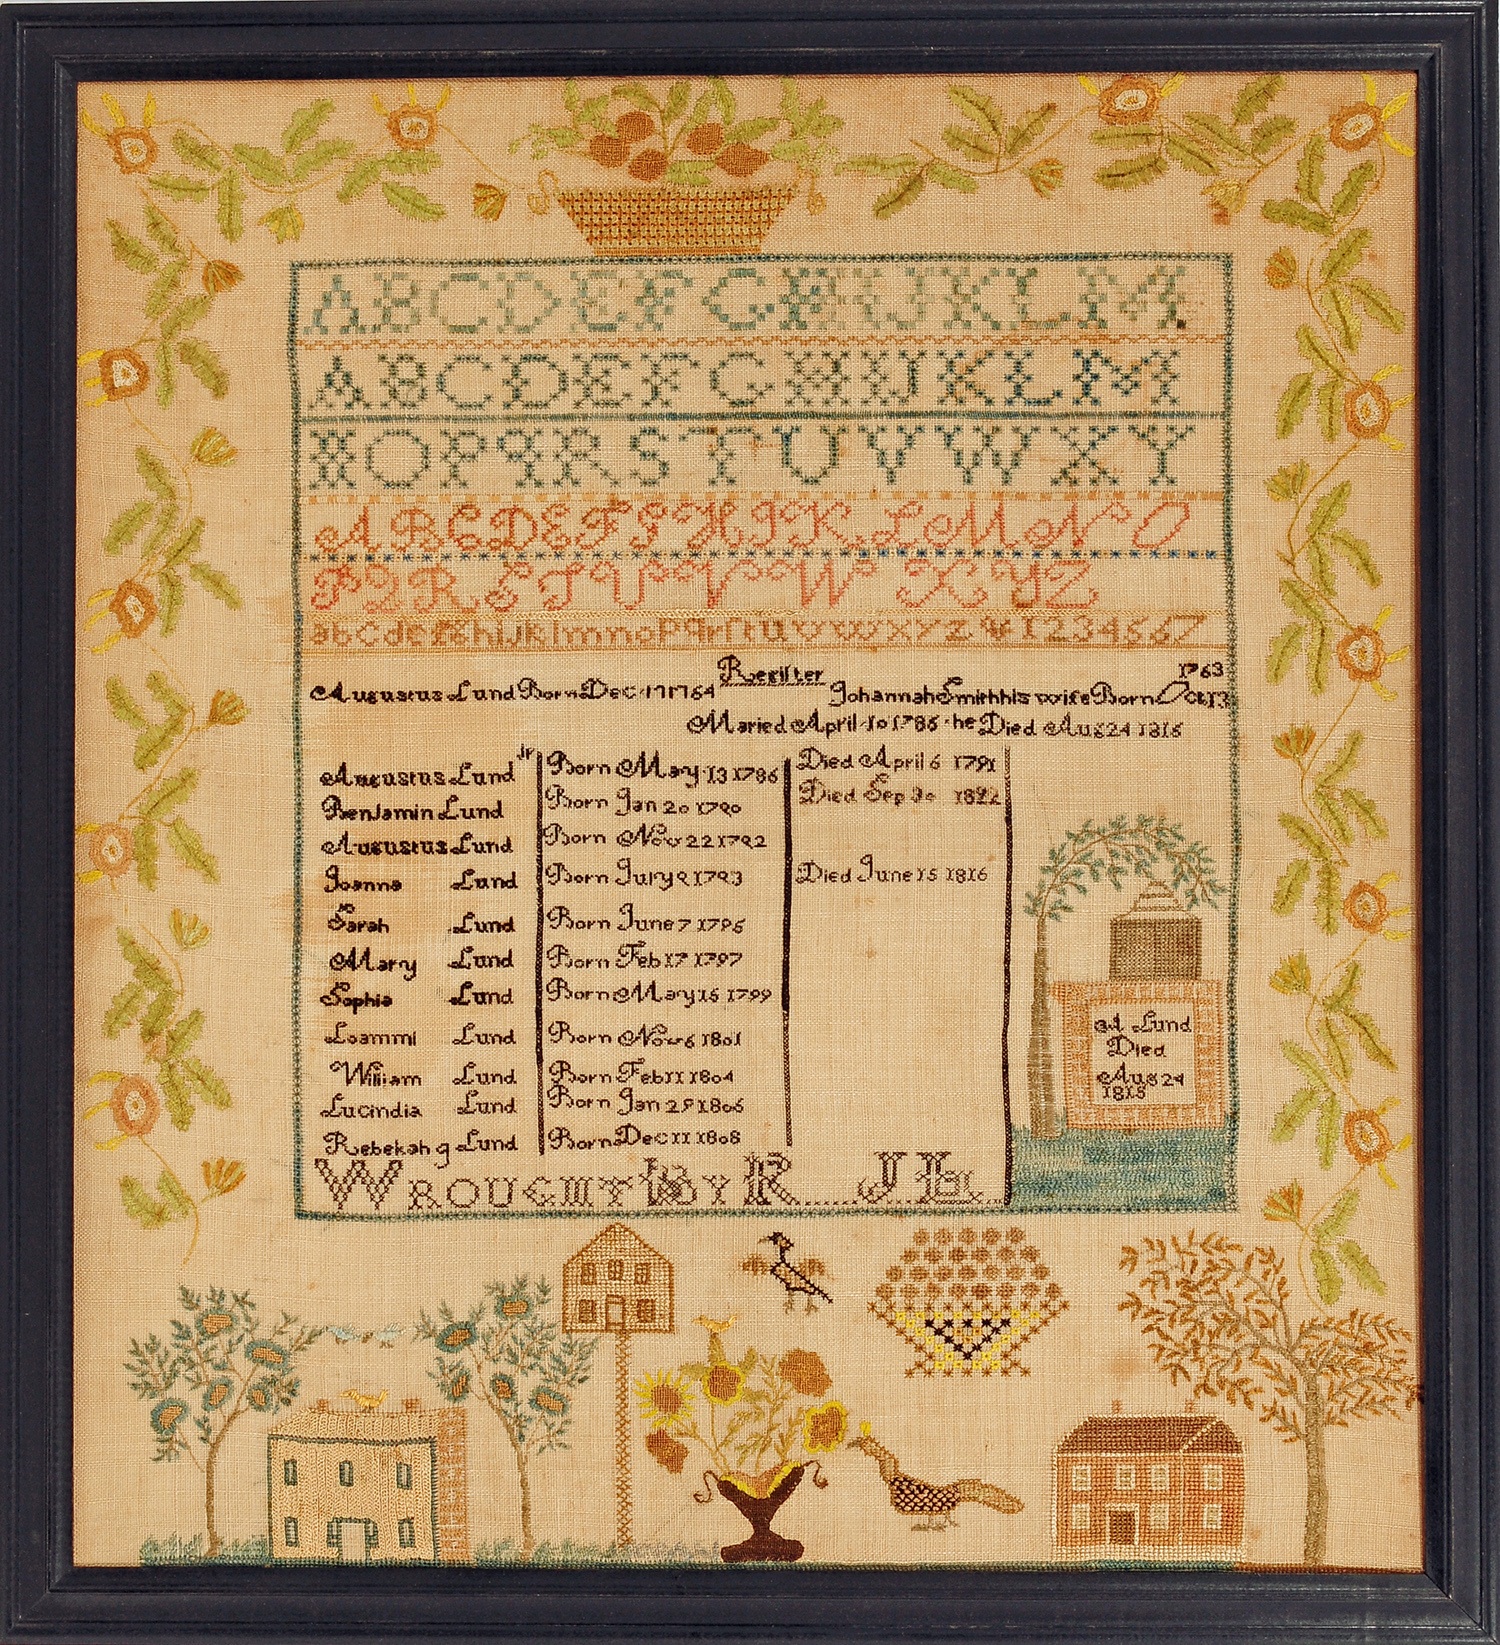 ABCDEFGHIJKLM
ABCDEFGHIJKLM
NOPQRSTUVWXY
ABCDEFGHIJKLMNO
PQRSTUVWXYZ
abcdefghijklmnopqrſtuvwxyz & 1234567
Regiſter
Augustus Lund Born Dec 17 1764 Johannah Smith his wife Born Oct 13 1763
Maried April 10 1786 he Died Aug 24 1816
Augustus Lund Jr Born May 13 1786 Died April 6 1791
Benjamin Lund Born Jan 20 1790 Died Sep 30 1822
Augustus Lund Born Nov 22 1792
Joanna Lund Born July 9 1793 Died June 15 1816
Sarah Lund Born June 7 1795
Marry Lund Born Feb 17 1797
Sophia Lund Born May 15 1799
Loammi Lund Born Nov 6 1801
William Lund Born Feb 11 1804
Lucindia Lund Born Jan 29 1806
Rebekah g Lund Born Dec 11 1808
A Lund
Died
Aug 24
1815
Wrought By R J L